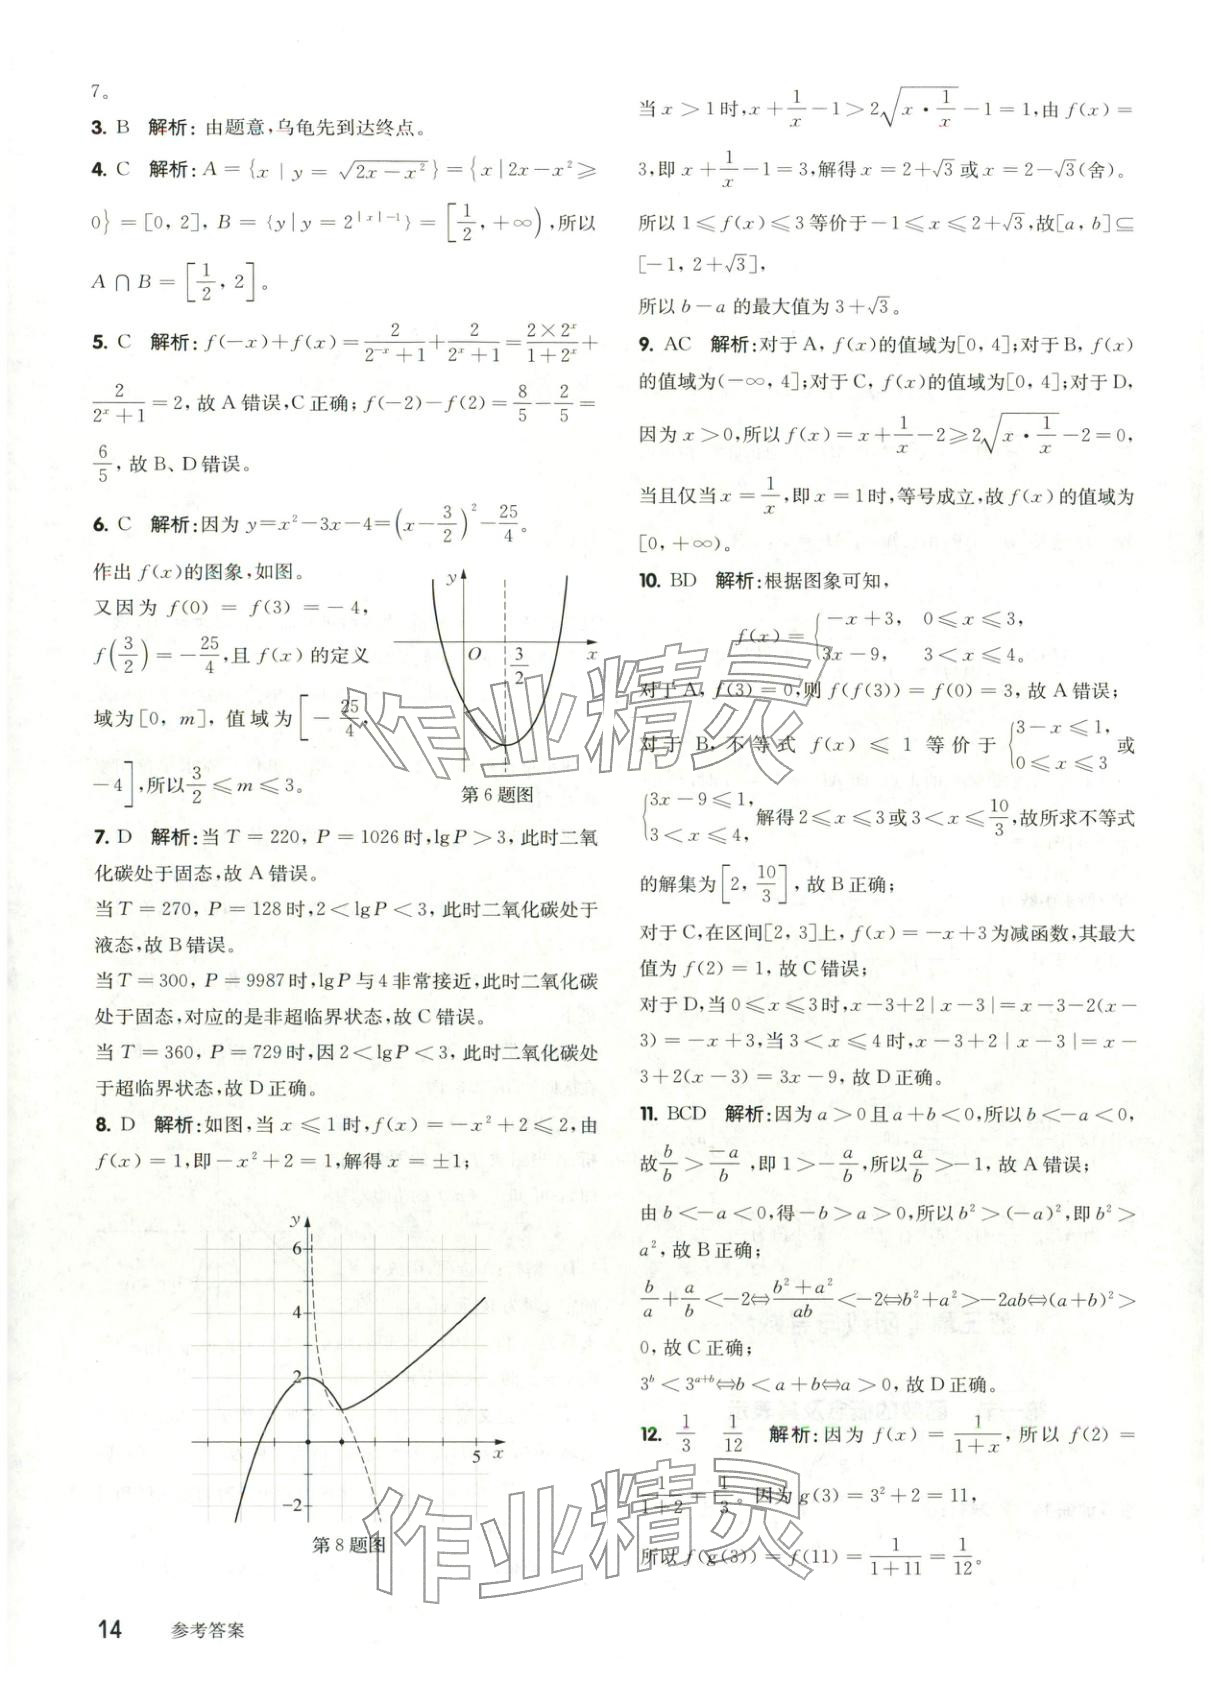 7。
3. B 解析:由题意,乌龟先到达终点。
4. C 解析:A={x|y=√(2x-x²)}={x|2x-x²≥
0}=[0, 2], B={y|y=2^{|x|-1}}=[1/2, +∞),所以
A∩B=[1/2, 2]。
5. C 解析:f(-x)+f(x)=2/(2^{-x}+1)+2/(2^x+1)=(2×2^x)/(1+2^x)+
2/(2^x+1)=2,故A错误,C正确;f(-2)-f(2)=8/5-2/5=
6/5,故B、D错误。
6. C 解析:因为y=x²-3x-4=(x-3/2)²-25/4。
作出f(x)的图象,如图。
又因为 f(0)=f(3)=-4,
f(3/2)=-25/4,且f(x)的定义
域为[0, m],值域为[-25/4,
-4],所以3/2≤m≤3。
y
O
3/2
x
第6题图
7. D 解析:当T=220, P=1026时,lgP>3,此时二氧
化碳处于固态,故A错误。
当T=270, P=128时,2<lgP<3,此时二氧化碳处于
液态,故B错误。
当T=300, P=9987时,lgP与4非常接近,此时二氧化碳
处于固态,对应的是非超临界状态,故C错误。
当T=360, P=729时,因2<lgP<3,此时二氧化碳处
于超临界状态,故D正确。
8. D 解析:如图,当x≤1时,f(x)=-x²+2≤2,由
f(x)=1,即-x²+2=1,解得x=±1;
y
6
4
2
5
x
-2
第8题图
14 参考答案
当x>1时,x+1/x-1>2√(x·1/x)-1=1,由f(x)=
3,即x+1/x-1=3,解得x=2+√3或x=2-√3(舍)。
所以1≤f(x)≤3等价于-1≤x≤2+√3,故[a, b]⊆
[-1, 2+√3],
所以b-a的最大值为3+√3。
9. AC 解析:对于A, f(x)的值域为[0, 4];对于B, f(x)
的值域为(-∞, 4];对于C, f(x)的值域为[0, 4];对于D,
因为x>0,所以f(x)=x+1/x-2≥2√(x·1/x)-2=0,
当且仅当x=1/x,即x=1时,等号成立,故f(x)的值域为
[0, +∞)。
10. BD 解析:根据图象可知,
f(x)={-x+3, 0≤x≤3,
3x-9, 3<x≤4。
对于A, f(3)=0,则f(f(3))=f(0)=3,故A错误;
对于B,不等式f(x)≤1等价于{3-x≤1, 0≤x≤3 或
{3x-9≤1, 3<x≤4, 解得2≤x≤3或3<x≤10/3,故所求不等式
的解集为[2, 10/3],故B正确;
对于C,在区间[2, 3]上, f(x)=-x+3为减函数,其最大
值为f(2)=1,故C错误;
对于D,当0≤x≤3时,x-3+2|x-3|=x-3-2(x-
3)=-x+3,当3<x≤4时,x-3+2|x-3|=x-
3+2(x-3)=3x-9,故D正确。
11. BCD 解析:因为a>0且a+b<0,所以b<-a<0,
故b/b>-a/b,即1>-a/b,所以a/b>-1,故A错误;
由b<-a<0,得-b>a>0,所以b²>(-a)²,即b²>
a²,故B正确;
b/a+a/b<-2⇔(b²+a²)/ab<-2⇔b²+a²>-2ab⇔(a+b)²>
0,故C正确;
3^b<3^{a+b}⇔b<a+b⇔a>0,故D正确。
12. 1/3 1/12 解析:因为f(x)=1/(1+x),所以f(2)=
1/(1+2)=1/3。因为g(3)=3²+2=11,
所以f(g(3))=f(11)=1/(1+11)=1/12。
作业精灵
作业精灵